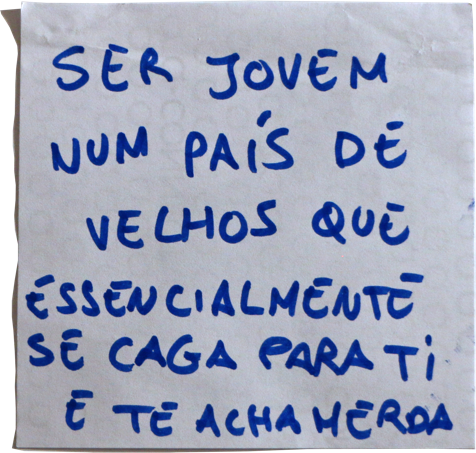 SER JOVEM
NUM PAÍS DE
VELHOS QUE
ESSENCIALMENTE
SE CAGA PARA TI
E TE ACHA MERDA